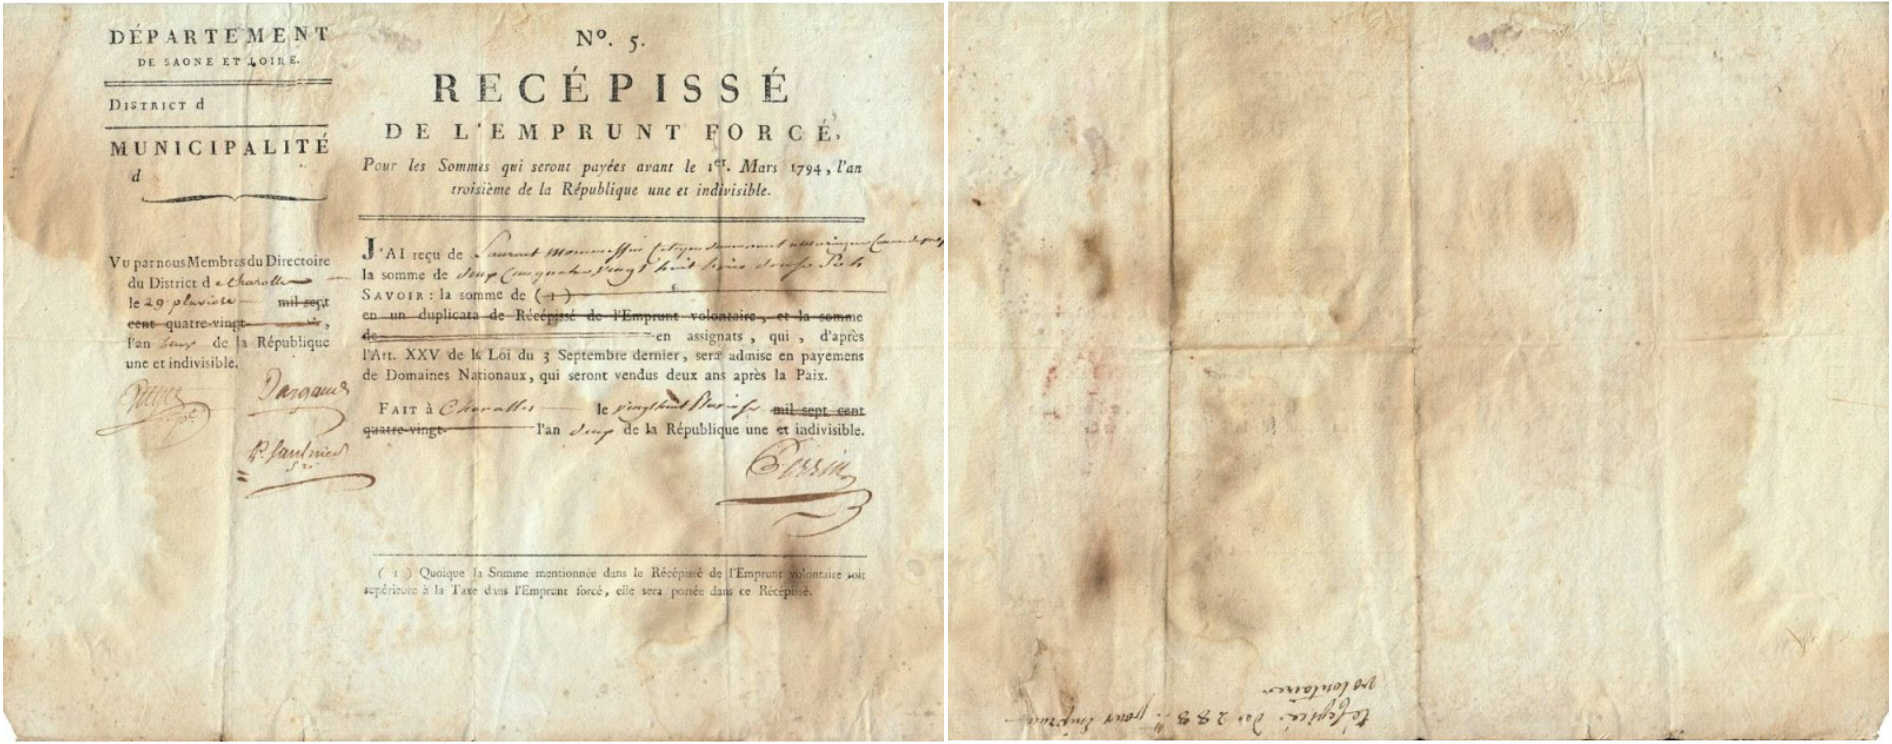 DÉPARTEMENT
DE SAONE ET LOIRE.
DISTRICT d
MUNICIPALITÉ
d
Vu par nous Membres du Directoire
du District de Charolles
le 29 pluviose mil sept
cent quatre-vingt
l'an deux de la République
une et indivisible.
Nº. 5.
RECÉPISSÉ
DE L'EMPRUNT FORCÉ,
Pour les Sommes qui seront payées avant le 1er. Mars 1794, l'an
troisième de la République une et indivisible.
J'AI reçu de Laurent Mommessin Citoyen demeurant
la somme de deux Cent quatre vingt huit livres douze Sols
SAVOIR : la somme de (1)
en un duplicata de Récépissé de l'Emprunt volontaire, et la somme
de en assignats, qui, d'après
l'Art. XXV de la Loi du 3 Septembre dernier, sera admise en payemens
de Domaines Nationaux, qui seront vendus deux ans après la Paix.
FAIT à Charolles le vingt huit Pluviose mil sept cent
quatre-vingt- l'an deux de la République une et indivisible.
Perrin
(1) Quoique la Somme mentionnée dans le Récépissé de l'Emprunt volontaire soit
supérieure à la Taxe dans l'Emprunt forcé, elle sera portée dans ce Récépissé.
De 288 pour Emprunt
volontaire